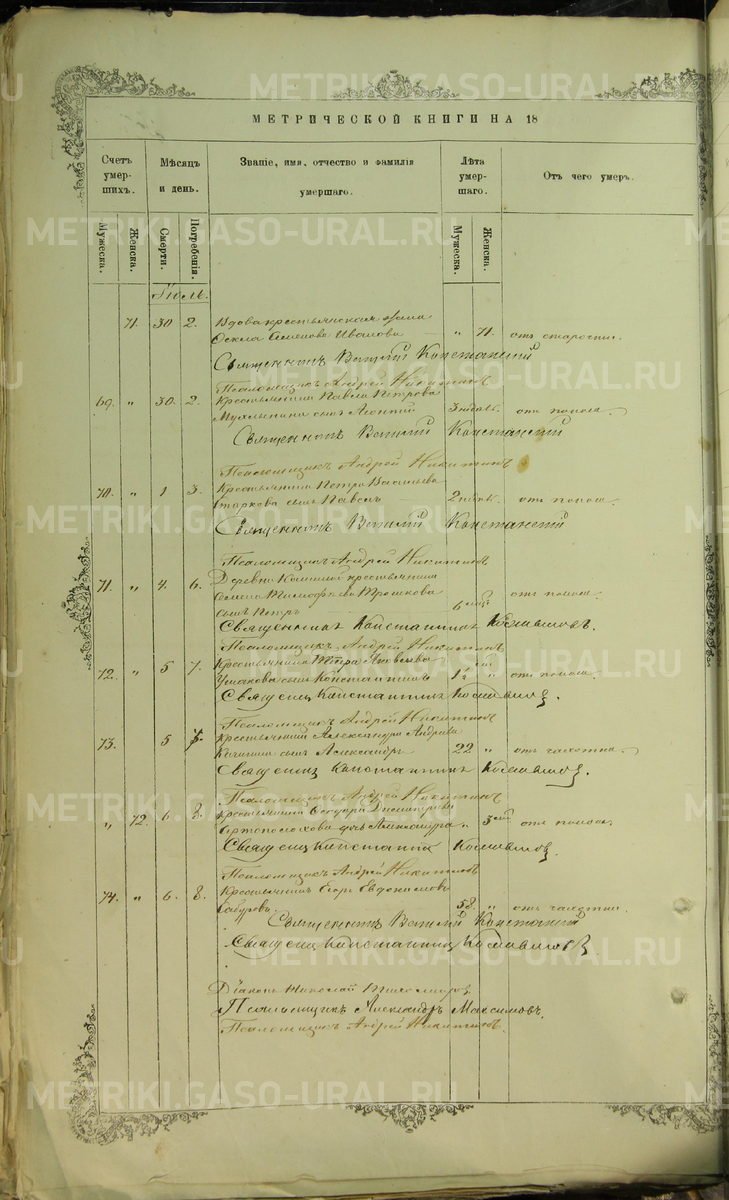 METRIKI.GASO-URAL.RU
МЕТРИЧЕСКОЙ КНИГИ НА 18
Счетъ умер- шихъ.
Мѣсяцъ и день.
Званіе, имя, отчество и фамилія умершаго.
Лѣта умер- шаго.
Отъ чего умеръ.
Мужеска.
Женска.
Смерти.
Погребенія.
Мужеска.
Женска.
Іюль.
71. 30 2. Вдова крестьянская жена
Ѳекла Семенова Иванова " 71. отъ старости.
Священникъ Виталій Констанскій
Псаломщикъ Андрей Никитинъ
69. " 30. 2. Крестьянина Павла Петрова
сынъ Леонтій 3 недѣль. отъ поноса.
Священникъ Виталій Констанскій
Псаломщикъ Андрей Никитинъ
70. " 1 3. Крестьянина Петра Васильева
Старкова сынъ Павелъ 2 недѣль. отъ поноса.
Священникъ Виталій Констанскій
Псаломщикъ Андрей Никитинъ
71. " 4. 6. Деревни крестьянина
Семена Тимофѣева Трошкова отъ поноса.
сынъ Петръ 6 мѣс
Священникъ Константинъ
Псаломщикъ Андрей Никитинъ
72. " 5 7. Крестьянина Петра
Ушакова сынъ Константинъ 1½ " отъ поноса.
Священ Константинъ
Псаломщикъ Андрей Никитинъ
73. 5 7. Крестьянина Александра Андреева
сынъ Александръ 22 " отъ чахотки.
Священ Константинъ
Псаломщикъ Андрей Никитинъ
" 72. 6 8. Крестьянина Ѳеодора Димитріева
дочь Александра " 3 мѣс отъ поноса.
Священ Константинъ
Псаломщикъ Андрей Никитинъ
74. " 6. 8. Крестьянинъ Егоръ Евдокимовъ
Сабуровъ. 58. " отъ чахотки.
Священникъ Виталій Констанскій
Священ Константинъ
Діаконъ Николай Тихомировъ
Псаломщикъ Александръ Максимовъ.
Псаломщикъ Андрей Никитинъ.